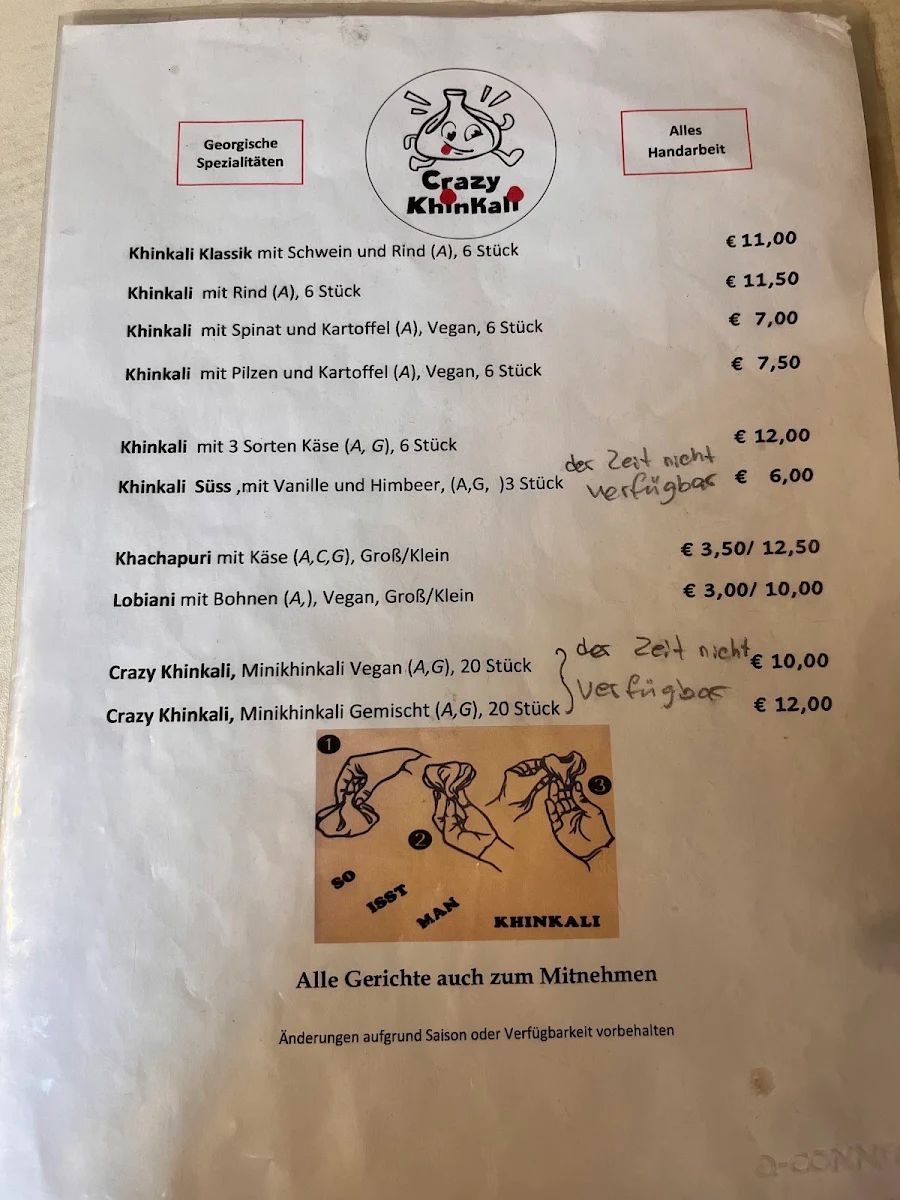 Georgische
Spezialitäten
Crazy
KhinKali
Alles
Handarbeit
Khinkali Klassik mit Schwein und Rind (A), 6 Stück € 11,00
Khinkali mit Rind (A), 6 Stück € 11,50
Khinkali mit Spinat und Kartoffel (A), Vegan, 6 Stück € 7,00
Khinkali mit Pilzen und Kartoffel (A), Vegan, 6 Stück € 7,50
Khinkali mit 3 Sorten Käse (A, G), 6 Stück € 12,00
der Zeit nicht
Khinkali Süss ,mit Vanille und Himbeer, (A,G, )3 Stück verfügbar € 6,00
Khachapuri mit Käse (A,C,G), Groß/Klein € 3,50/ 12,50
Lobiani mit Bohnen (A,), Vegan, Groß/Klein € 3,00/ 10,00
Crazy Khinkali, Minikhinkali Vegan (A,G), 20 Stück der Zeit nicht € 10,00
Crazy Khinkali, Minikhinkali Gemischt (A,G), 20 Stück verfügbar € 12,00
1
2
3
SO
ISST
MAN
KHINKALI
Alle Gerichte auch zum Mitnehmen
Änderungen aufgrund Saison oder Verfügbarkeit vorbehalten